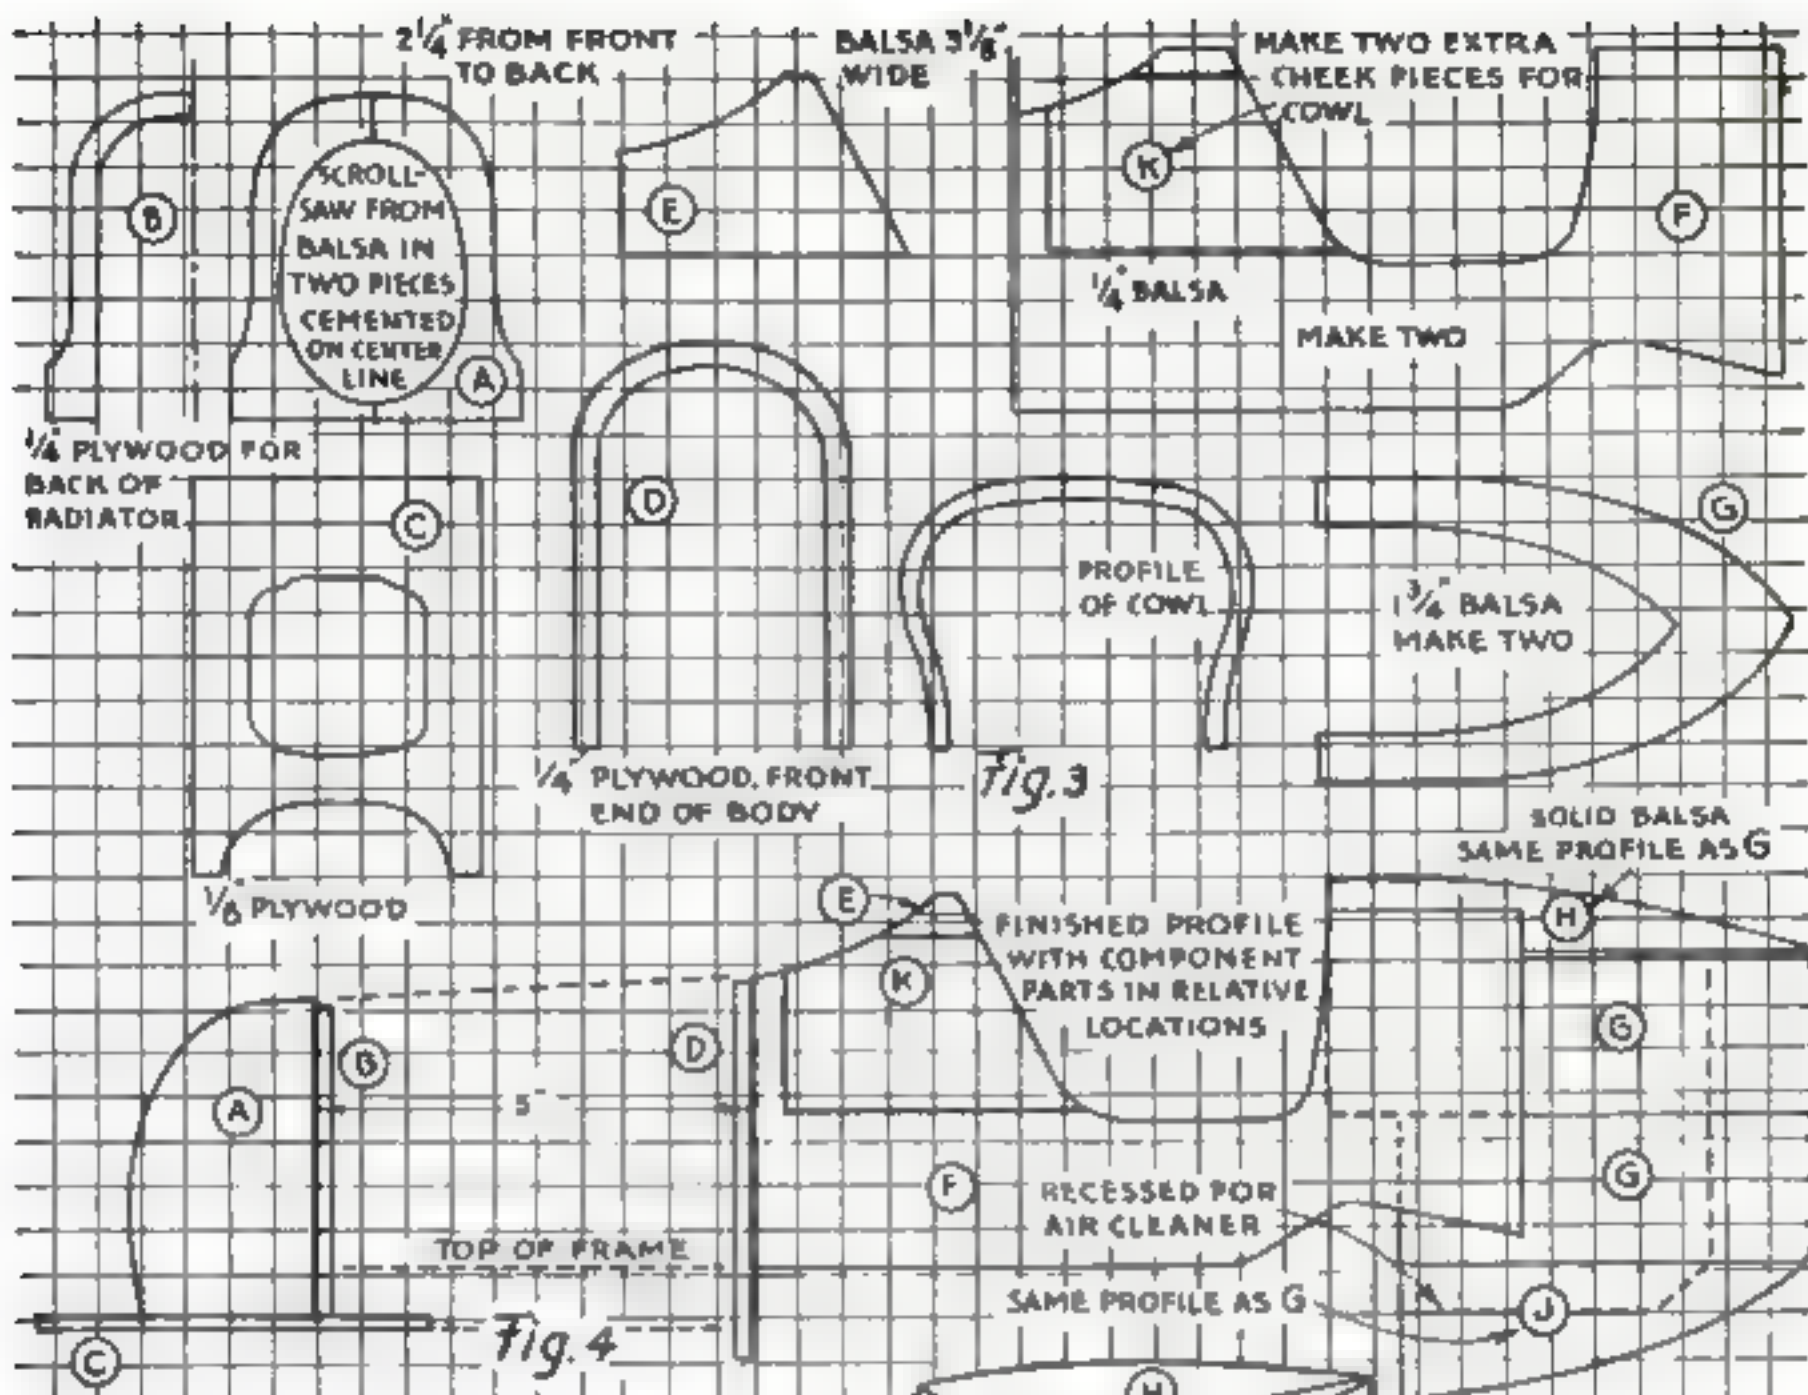 2 1/4" FROM FRONT
TO BACK
BALSA 3 1/8"
WIDE
MAKE TWO EXTRA
CHEEK PIECES FOR
COWL
K
B
E
F
SCROLL-
SAW FROM
BALSA IN
TWO PIECES
CEMENTED
ON CENTER
LINE
A
1/4" BALSA
MAKE TWO
1/4" PLYWOOD FOR
BACK OF
RADIATOR
C
D
G
PROFILE
OF COWL
1 3/4" BALSA
MAKE TWO
1/4" PLYWOOD, FRONT
END OF BODY
Fig. 3
SOLID BALSA
SAME PROFILE AS G
PLYWOOD
E
H
FINISHED PROFILE
WITH COMPONENT
PARTS IN RELATIVE
LOCATIONS
K
G
B
D
A
5"
F
G
RECESSED FOR
AIR CLEANER
TOP OF FRAME
SAME PROFILE AS G
J
Fig. 4
C
H